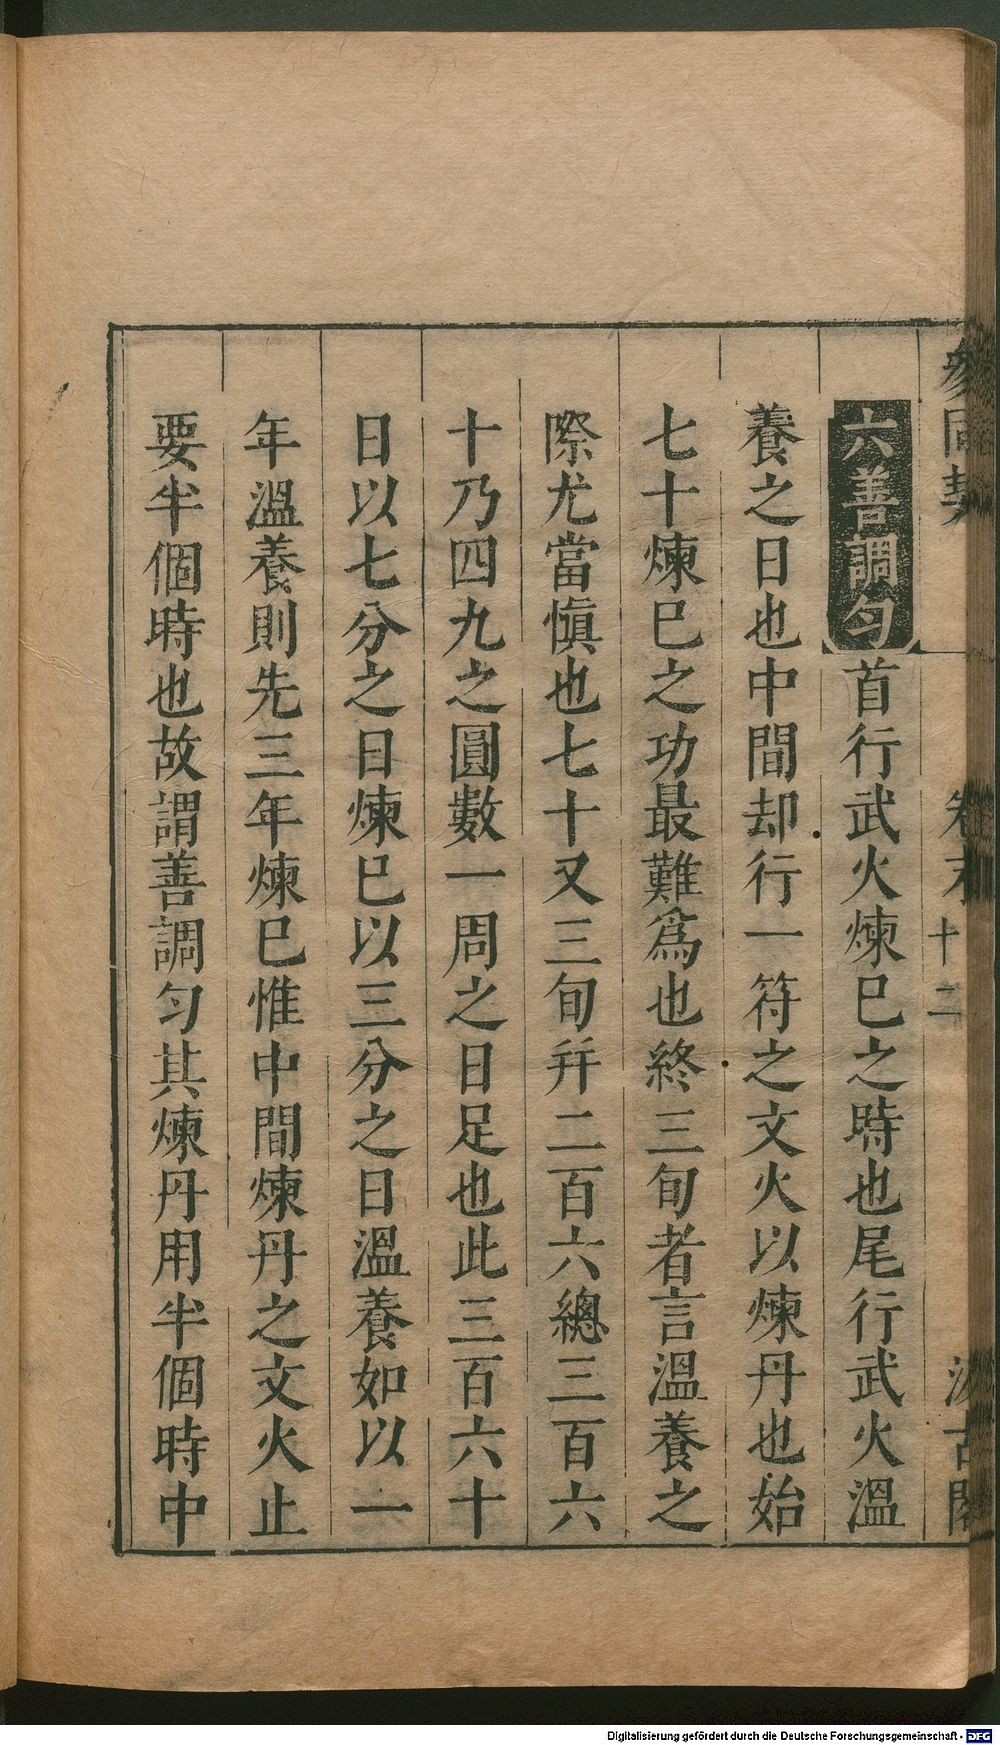 參同契 卷末 十二 汲古閣
六善調勻 首行武火煉巳之時也尾行武火溫
養之日也中間却行一符之文火以煉丹也始
七十煉巳之功最難爲也終三旬者言溫養之
際尤當慎也七十又三旬幷二百六總三百六
十乃四九之圓數一周之日足也此三百六十
日以七分之日煉巳以三分之日溫養如以一
年溫養則先三年煉巳惟中間煉丹之文火止
要半個時也故謂善調勻其煉丹用半個時中
Digitalisierung gefördert durch die Deutsche Forschungsgemeinschaft - DFG